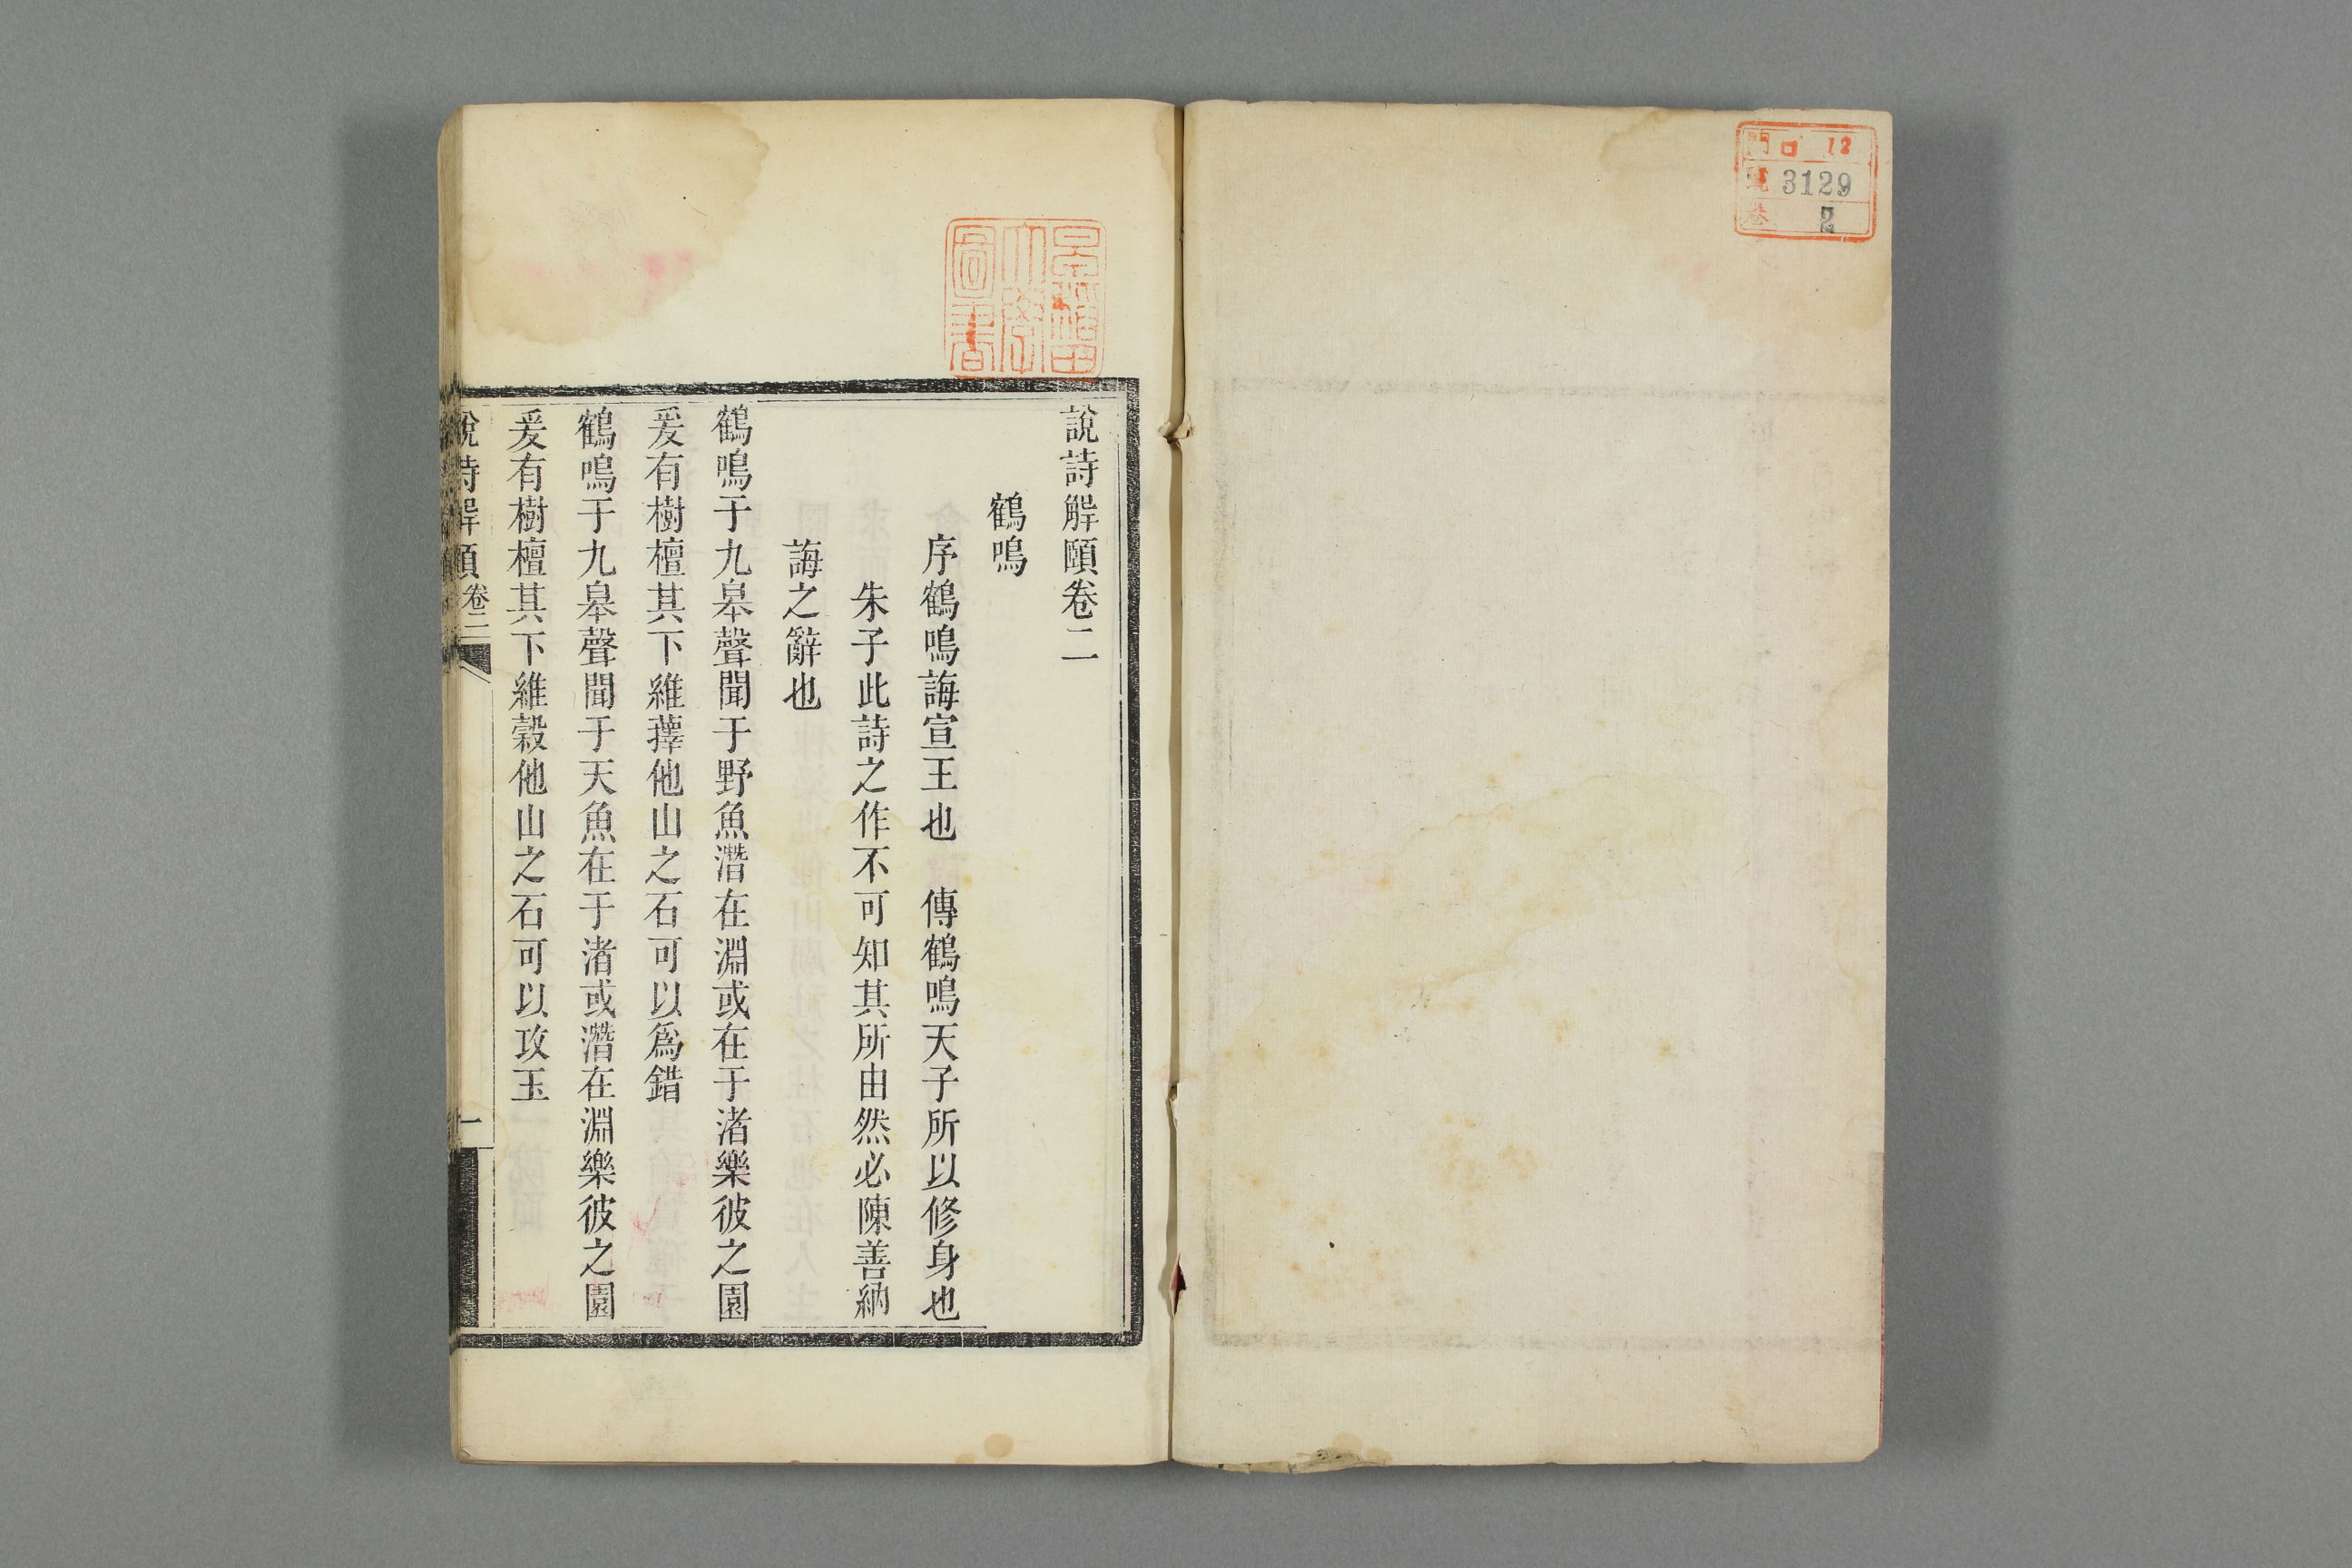 門 ロ 12
號 3129
卷 2
早稲田大學圖書
說詩觧頤卷二
鶴鳴
序鶴鳴誨宣王也 傳鶴鳴天子所以修身也
朱子此詩之作不可知其所由然必陳善納
誨之辭也
鶴鳴于九皋聲聞于野魚潛在淵或在于渚樂彼之園
爰有樹檀其下維蘀他山之石可以爲錯
鶴鳴于九皋聲聞于天魚在于渚或潛在淵樂彼之園
爰有樹檀其下維榖他山之石可以攻玉
說詩觧頤 卷二 一